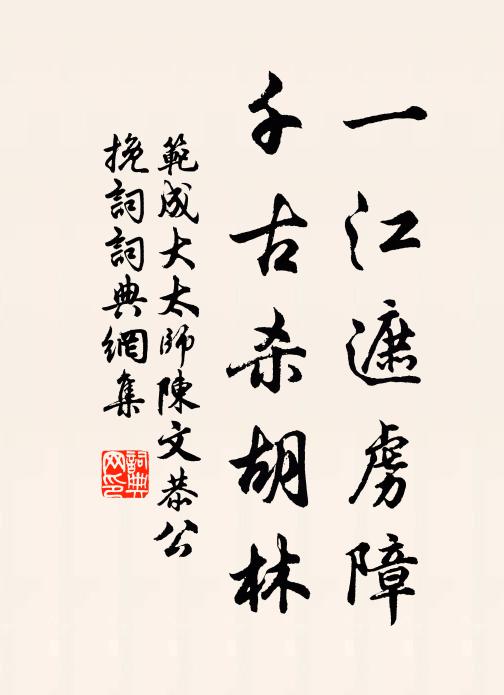 一江遮虜障
千古杀胡林
範成大太師陳文恭公
挽詞詞典網集
詞典网印